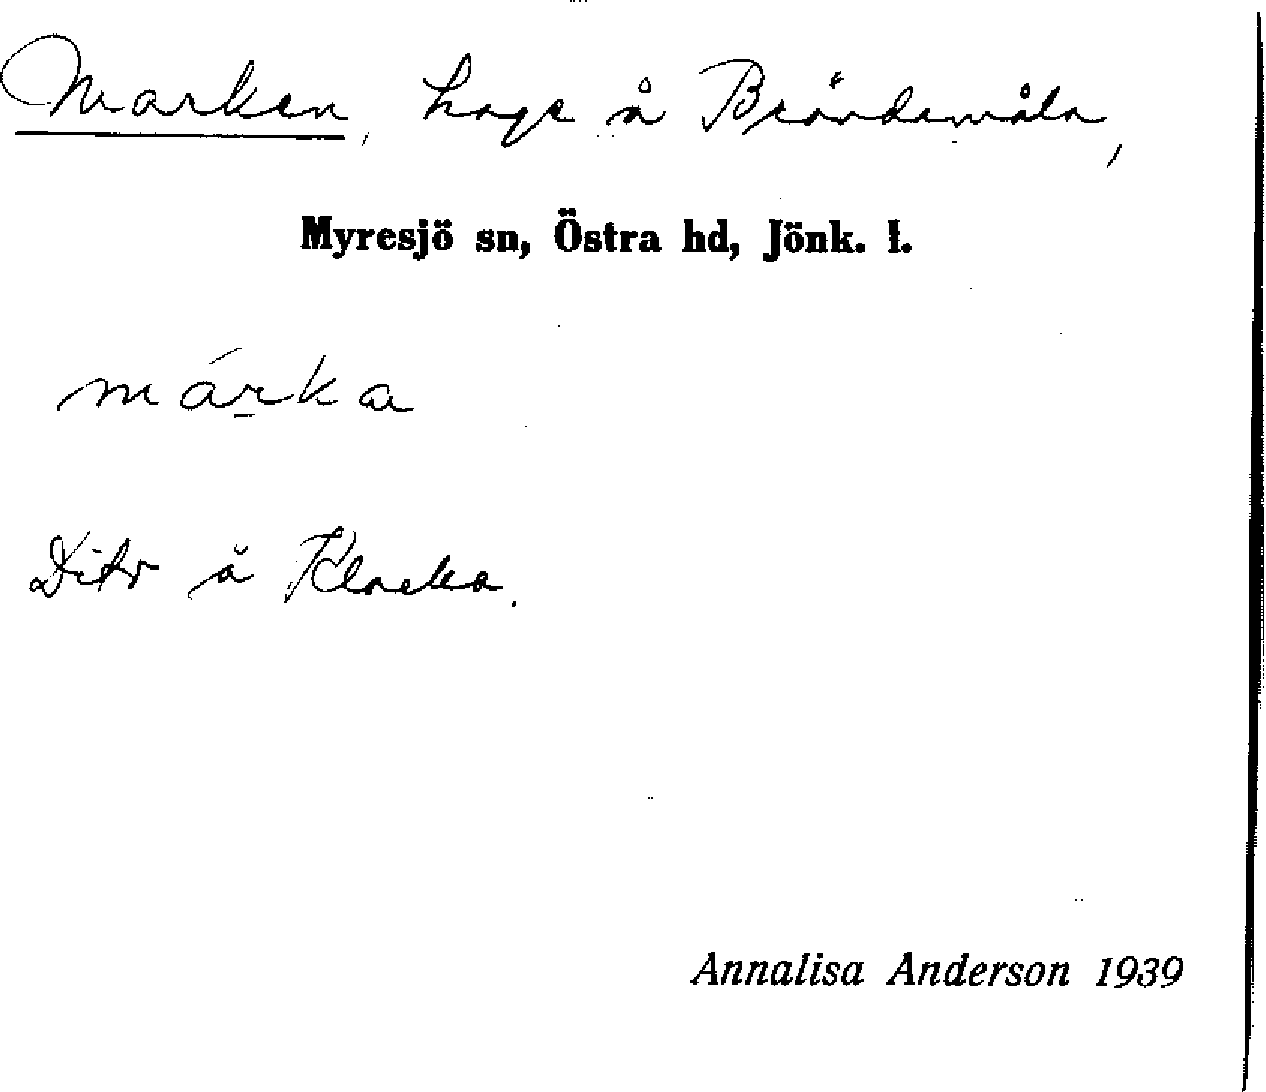 Marken, hage å Brändamåla,
Myresjö sn, Östra hd, Jönk. l.
márka
Ditr å Klacka.
Annalisa Anderson 1939